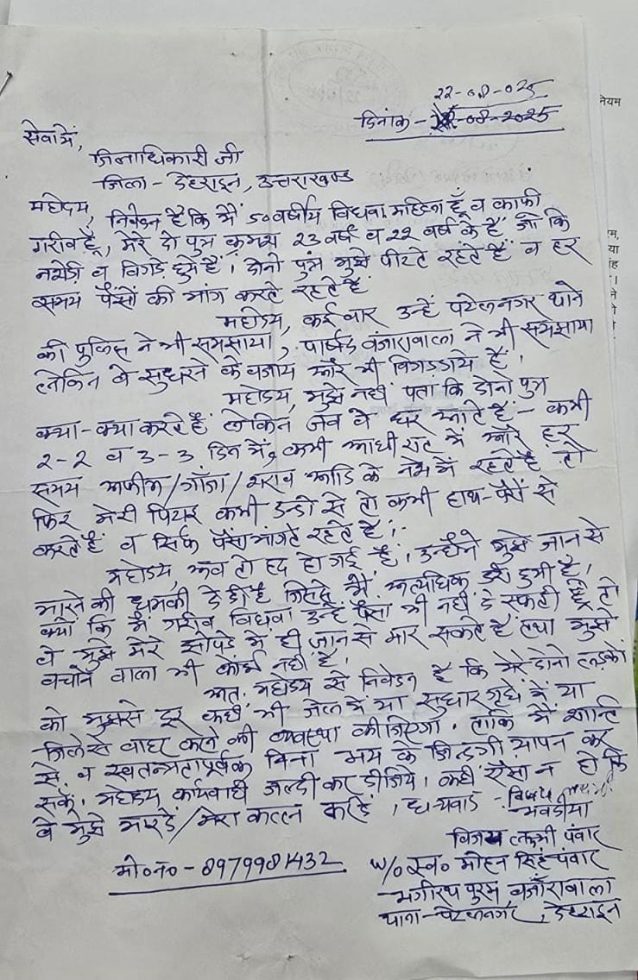 22-08-025
दिनांक - 22-08-2025
सेवा में,
जिलाधिकारी जी
जिला - देहरादून, उत्तराखण्ड
महोदय,
निवेदन है कि मैं 50 वर्षीय विधवा महिला हूँ व काफी
गरीब हूँ, मेरे दो पुत्र क्रमश 23 वर्ष व 22 वर्ष के हैं जो कि
नशेड़ी व बिगड़े हुये हैं। दोनो पुत्र मुझे पीटते रहते हैं व हर
समय पैसों की मांग करते रहते हैं
महोदय, कई बार उन्हें पटेलनगर थाने
की पुलिस ने भी समझाया, पार्षद बंजारावाला ने भी समझाया
लेकिन वे सुधरने के बजाय और भी बिगड गये हैं।
महोदय, मुझे नहीं पता कि दोनो पुत्र
क्या-क्या करते हैं लेकिन जब वे घर आते हैं - कभी
2-2 व 3-3 दिन में, कभी आधी रात में और हर
समय अफीम/गाँजा/शराब आदि के नशे में रहते हैं तो
फिर मेरी पिटाई कभी डन्डो से तो कभी हाथ-पैरों से
करते हैं व सिर्फ पैसा मांगते रहते हैं।
महोदय, अब तो हद हो गई है। उन्होंने मुझे जान से
मारने की धमकी दे दी है जिससे मैं अत्यधिक डरी हुयी हूँ।
क्यों कि मैं गरीब विधवा उन्हें पैसा भी नहीं दे सकती हूँ तो
वे मुझे मेरे झोपडे में ही जान से मार सकते हैं तथा मुझे
बचाने वाला भी कोई नहीं है।
अतः महोदय से निवेदन है कि मेरे दोनो लडकों
को मुझसे दूर कहीं भी जेल में या सुधार गृह में या
जिले से बाहर करने की व्यवस्था की जियेगा. ताकि मैं शान्ति
से, व स्वतन्त्रतापूर्वक बिना भय के जिन्दगी यापन कर
सकूं. महोदय कार्यवाही जल्दी कर दीजिये। कहीं ऐसा न हो कि
वे मुझे मारदें/मेरा कत्ल करदें। धन्यवाद -
विजय लक्ष्मी पंवार
W/o स्व० मोहन सिंह पंवार
भगीरथ पुरम, बंजारावाला
थाना - पटेलनगर, देहरादून
मो०न० - 8979981432
नियम